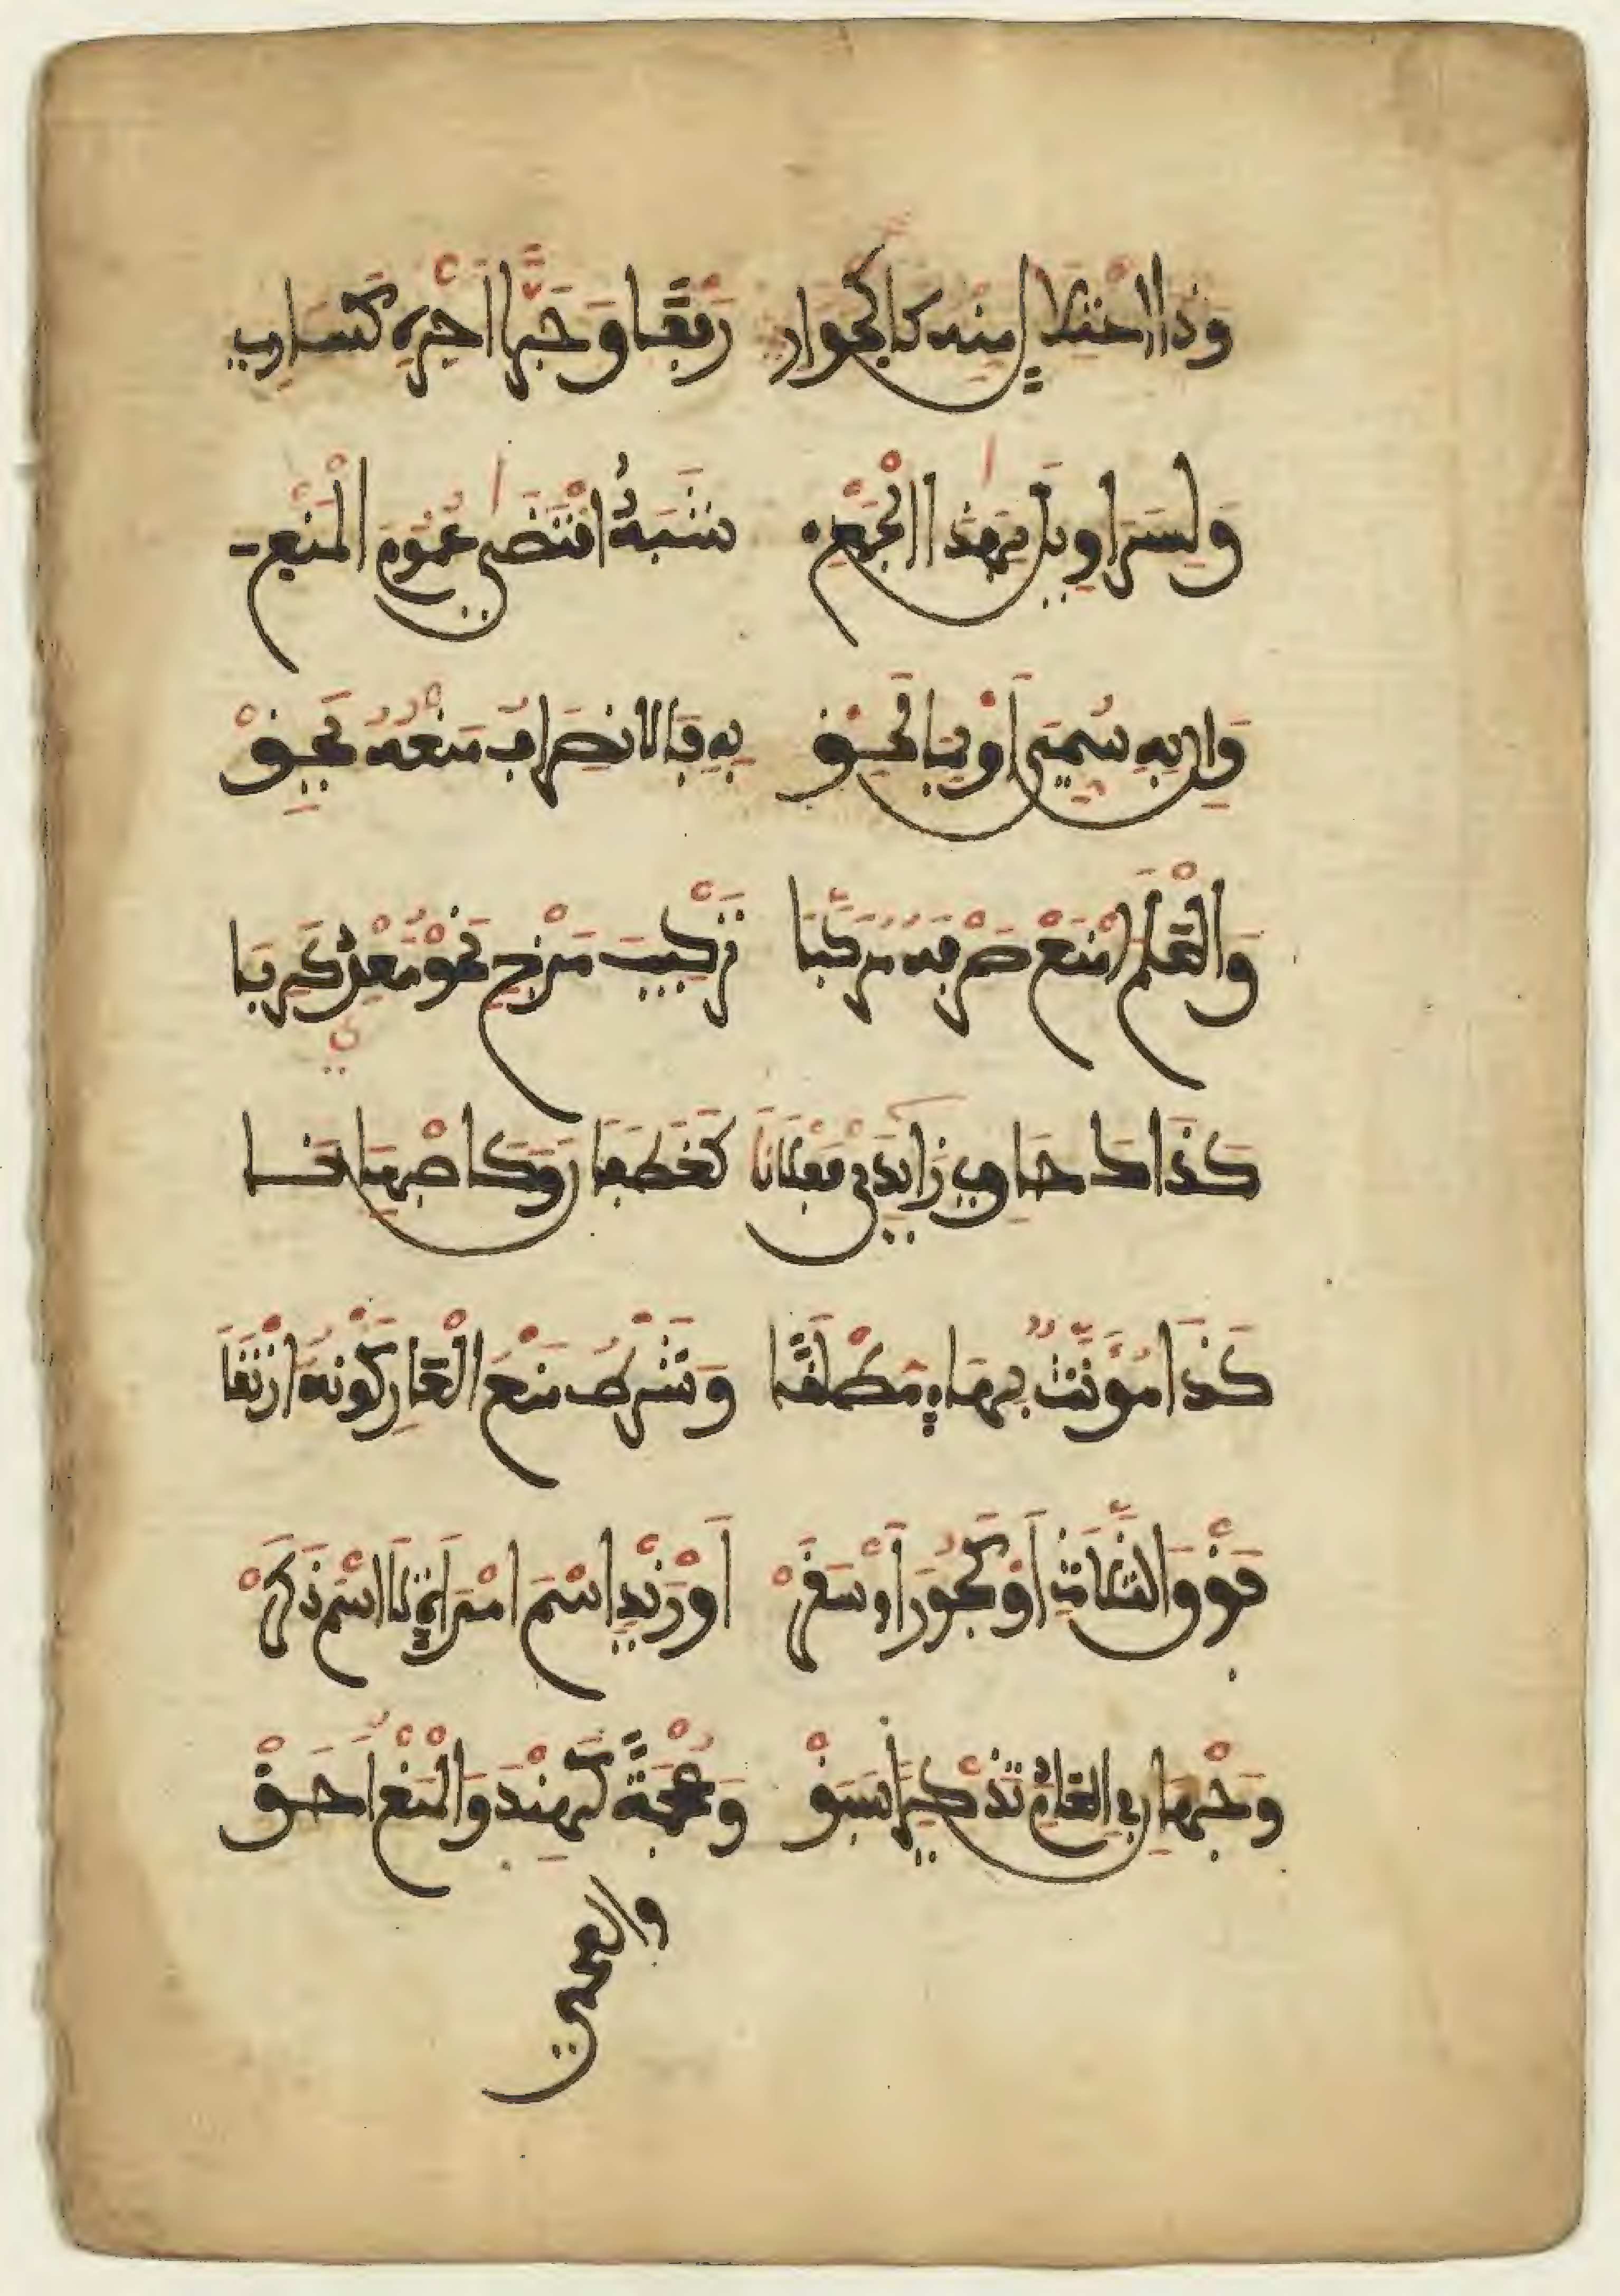 وَذَا اعْتِلَالٍ مِنْهُ كَالْجَوَارِي رَفْعًا وَجَرًّا أَجْرِهِ كَسَارِي
وَلِسَرَاوِيلَ بِهَذَا الْجَمْعِ شَبَهٌ اقْتَضَى عُمُومَ الْمَنْعِ
وَإِنْ بِهِ سُمِّيَ أَوْ بِمَا لَحِقْ بِهِ فَالِانْصِرَافُ مَنْعُهُ يَحِقْ
وَالْعَلَمَ امْنَعْ صَرْفَهُ مُرَكَّبَا تَرْكِيبَ مَزْجٍ نَحْوُ مَعْدِي كَرِبَا
كَذَاكَ حَاوِي زَائِدَيْ فَعْلَانَا كَغَطَفَانَ وَكَأَصْبَهَانَا
كَذَا مُؤَنَّثٌ بِهَاءٍ مُطْلَقًا وَشَرْطُ مَنْعِ الْعَارِ كَوْنُهُ ارْتَقَى
فَوْقَ الثَّلَاثِ أَوْ كَجُورَ أَوْ سَقَرْ أَوْ زَيْدٍ اسْمَ امْرَأَةٍ لَا اسْمَ ذَكَرْ
وَجْهَانِ فِي الْعَادِمِ تَذْكِيرًا سَبَقْ وَعُجْمَةً كَهِنْدَ وَالْمَنْعُ أَحَقْ
والعجمي